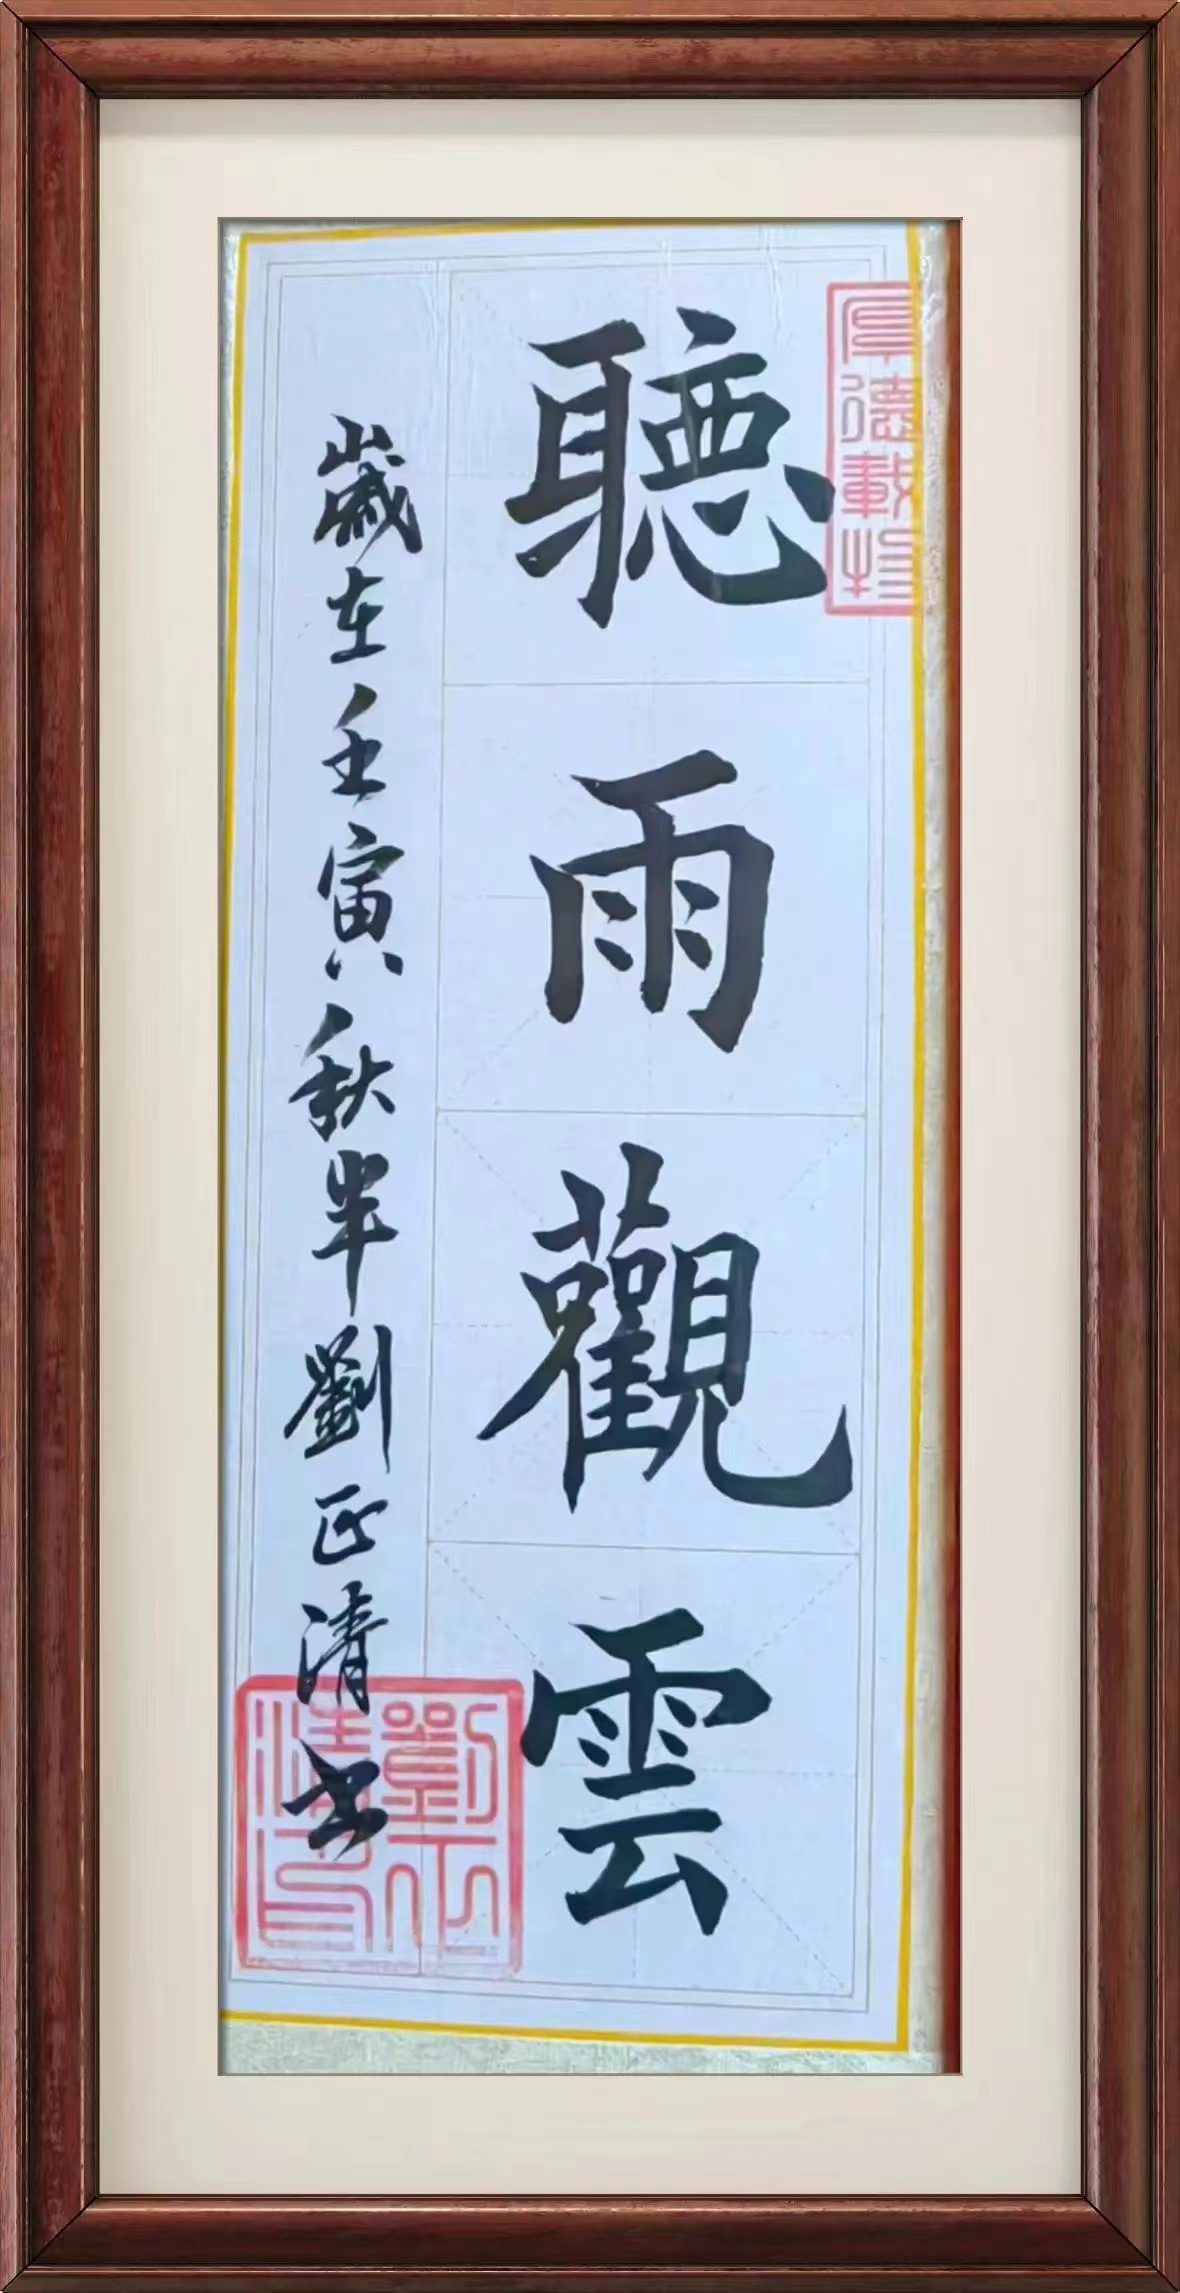 厚德載物
聽雨觀雲
歲在壬寅秋半劉正清书
劉正清印